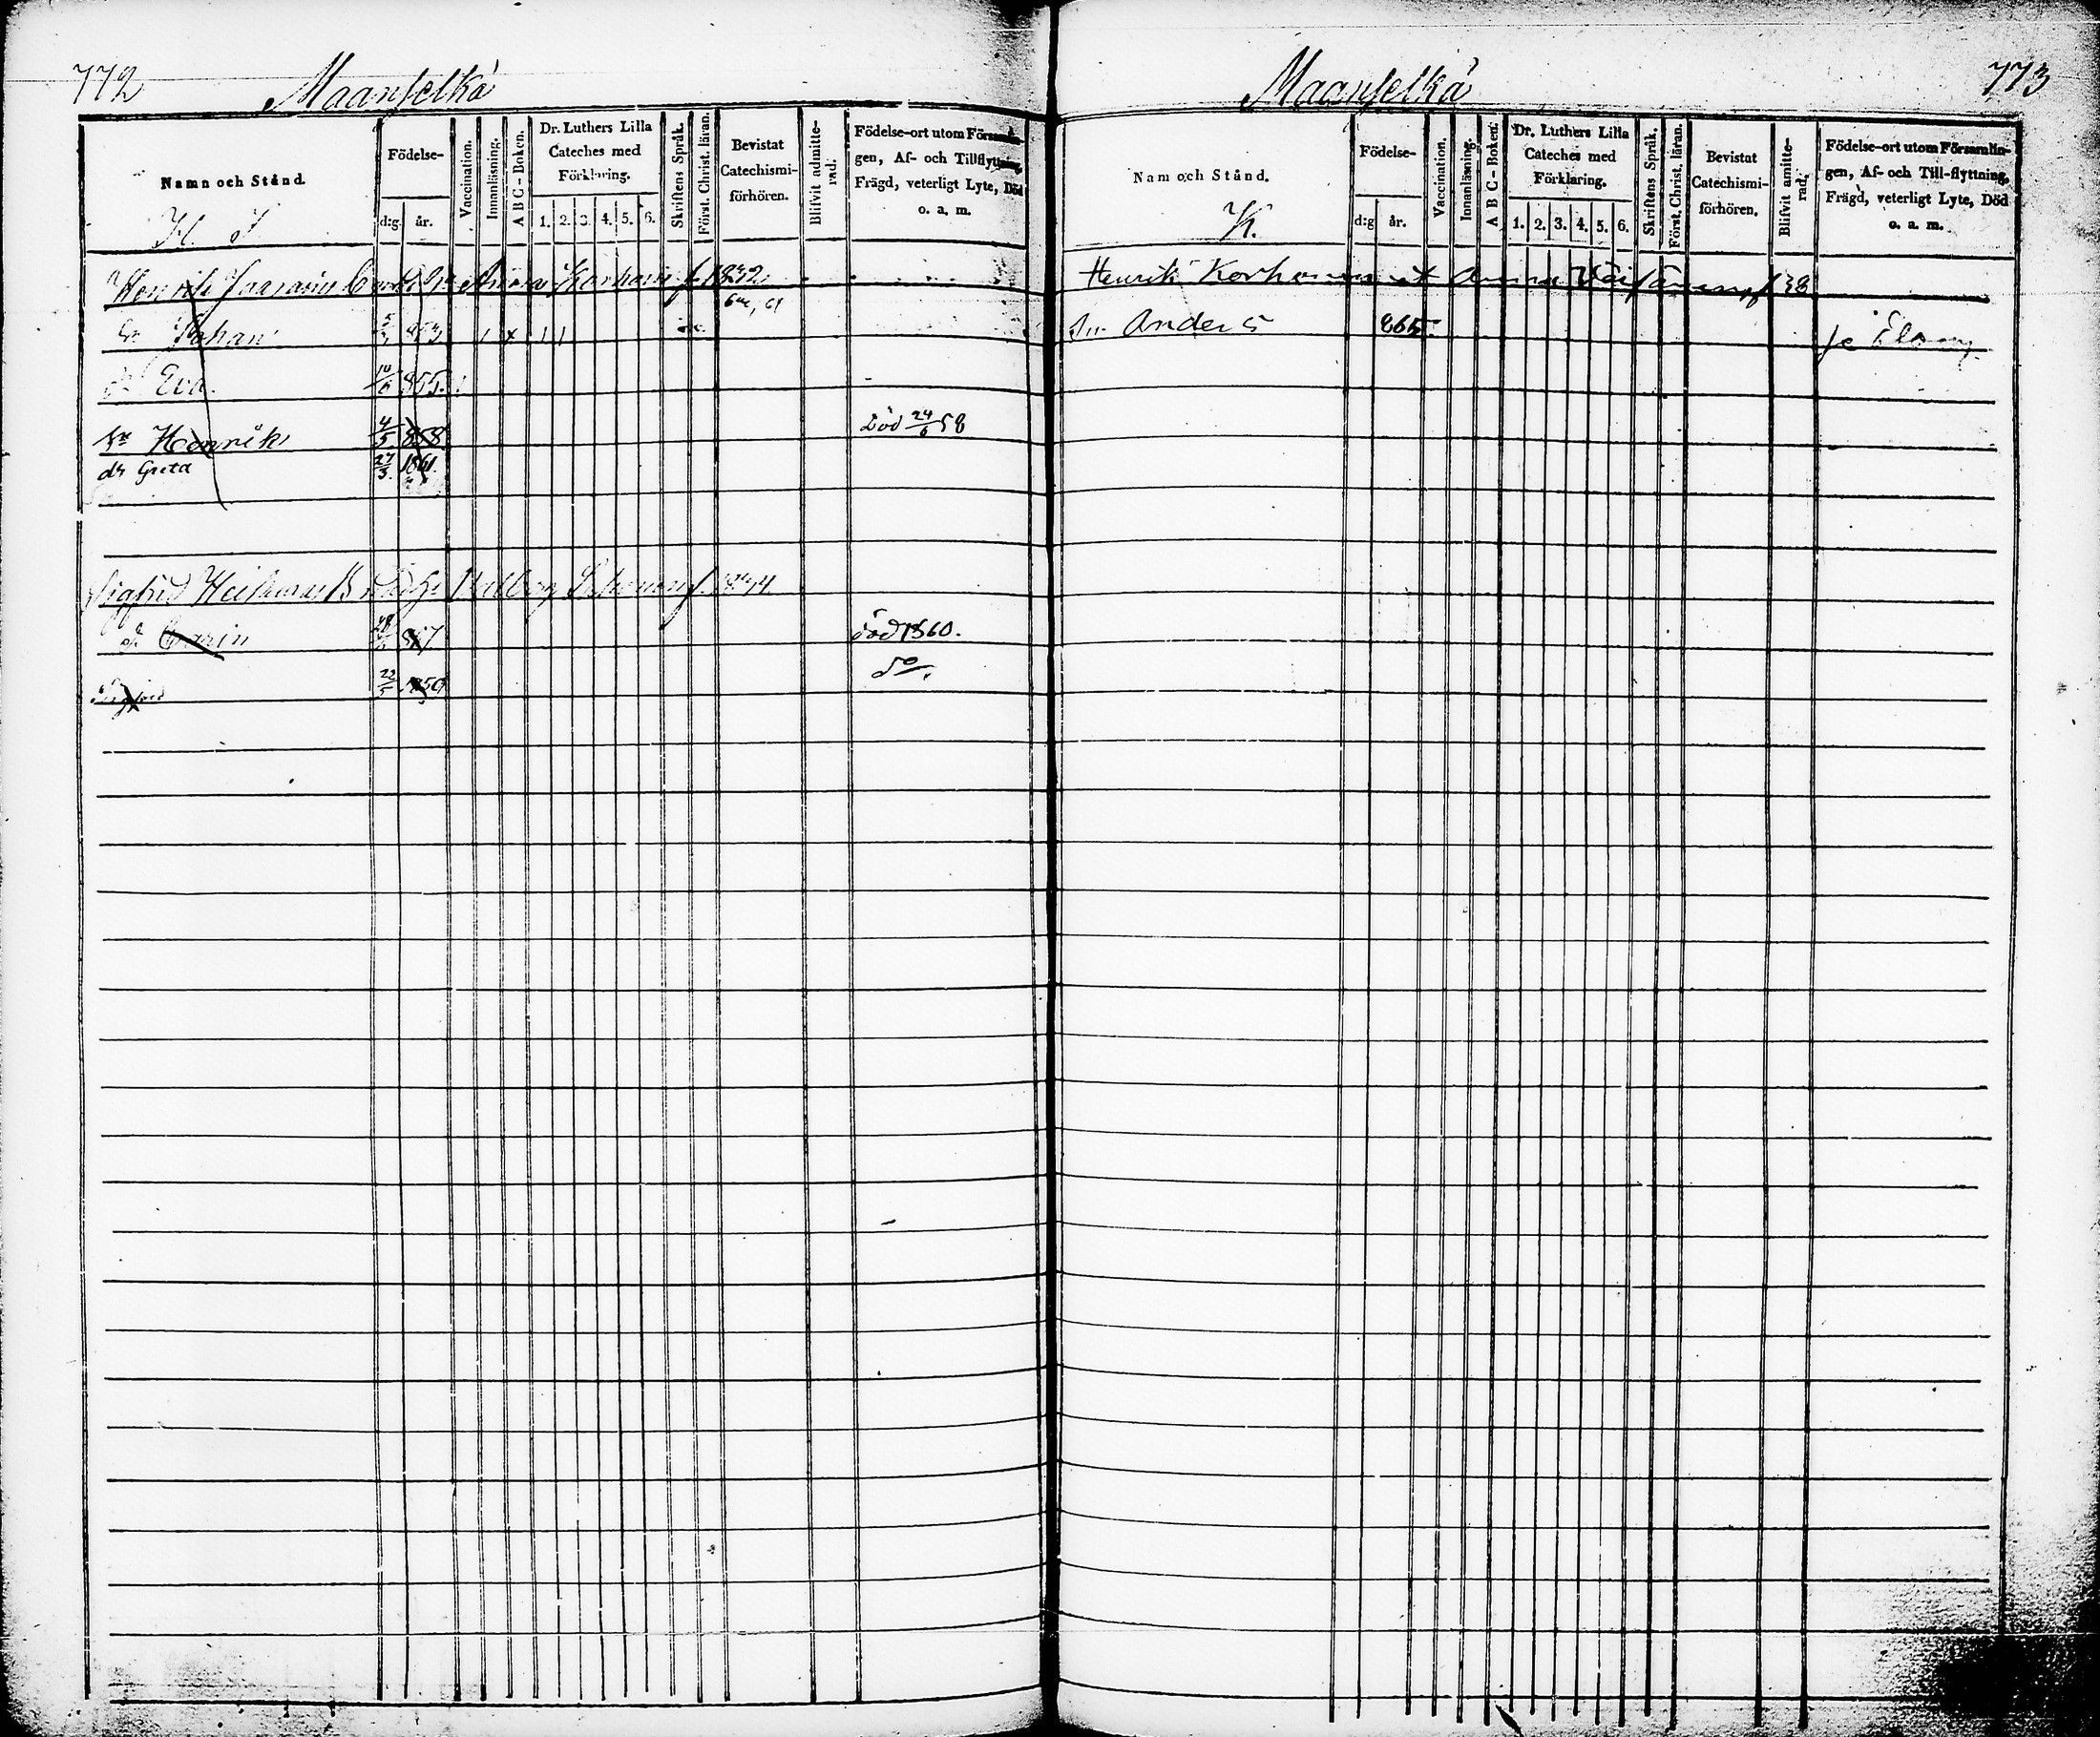 772 Maanselkä
Namn och Stånd
H. J
Födelse-
d:g. år.
Vaccination.
Innanläsning.
A B C - Boken.
Dr. Luthers Lilla
Cateches med
Förklaring.
1. 2. 3. 4. 5. 6.
Skriftens Språk.
Först. Christ. läran.
Bevistat
Catechismi-
förhören.
Blifvit admitte-
rad.
Födelse-ort utom Församlin-
gen, Af- och Tillflyttning,
Frägd, veterligt Lyte, Död
o. a. m.
Henrik Anna Korhonen f. 1832
Johan 853
dr Eva 10/6 855.
Sn Henrik 4/5 858 död 24/6 58
dr Greta 27/3 1861.
Sigfrid
dr Carin 857 död 1860.
Sigfrid 22/5 1859 do
Maanselkä 773
Nam och Stånd.
K.
Födelse-
d:g år.
Vaccination.
Innanläsning.
A B C - Boken.
Dr. Luthers Lilla
Cateches med
Förklaring.
1. 2. 3. 4. 5. 6.
Skriftens Språk.
Först. Christ. läran.
Bevistat
Catechismi-
förhören.
Blifvit amitte-
rad.
Födelse-ort utom Församlin-
gen, Af- och Till-flyttning,
Frägd, veterligt Lyte, Död
o. a. m.
Henrik Korhonen Anna Väisänen f 38
Sn Anders 865.